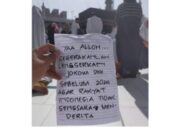 YAA ALLOH...
SEGERAKAN...
LENGSERKAN
JOKOWI DKK
SEBELUM 2024
AGAR RAKYAT
INDONESIA TIDAK
SENGSARA MEN-
DERITA